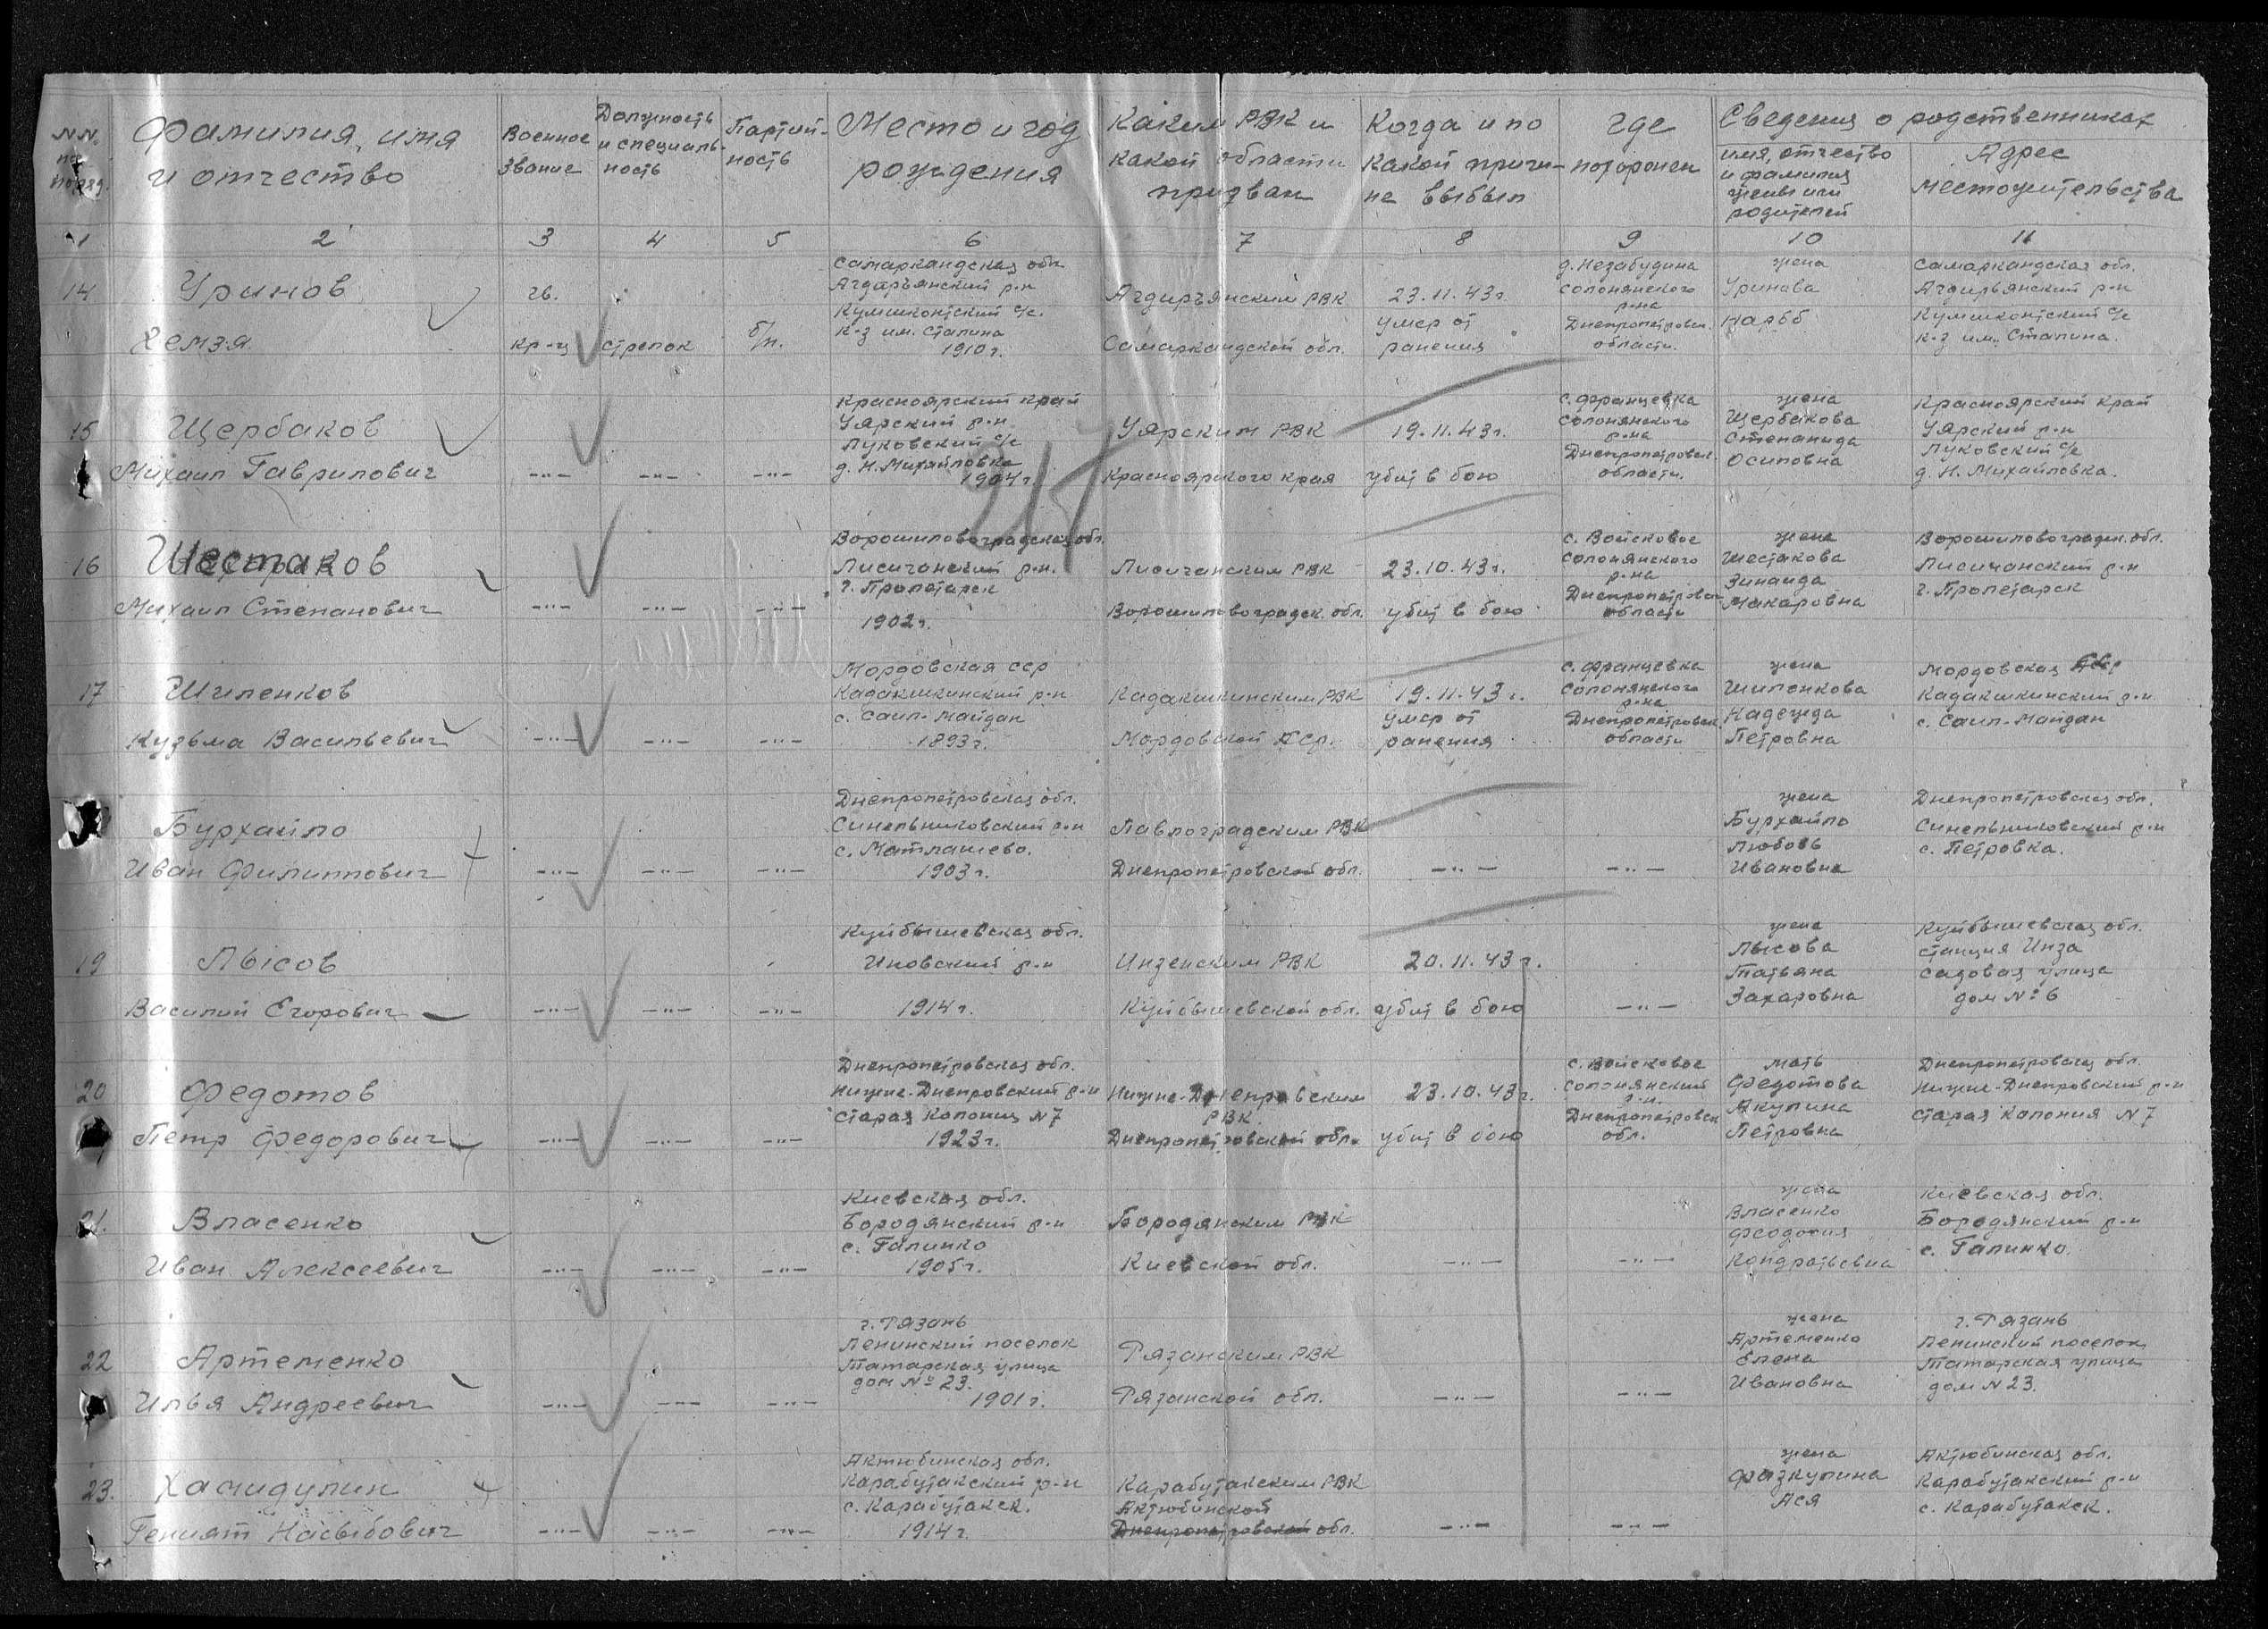 NN. по поряд.
Фамилия, имя и отчество
Военное звание
Должность и специаль-ность
Партий-ность
Место и год рождения
Каким РВК и какой области призван
Когда и по какой причи-не выбыл
где похоронен
Сведения о родственниках
имя, отчество и фамилия жены или родителей
Адрес местожительства
1 2 3 4 5 6 7 8 9 10 11
14
Уринов
Хемзя
гв.
кр-ц
стрелок
б/п.
Самаркандская обл.
Агдарьянский р-н
Кумшконтский с/с.
к-з им. Сталина
1910г.
Агдирьянским РВК
Самаркандской обл.
23.11.43г.
умер от
ранения
д. Незабудина
Солонянского
р-на
Днепропетровск.
области.
жена
Уринова
Нарбб
Самаркандская обл.
Агдирьянский р-н
Кумшконтский с/с
к-з им. Сталина.
15
Щербаков
Михаил Гаврилович
-"- -"- -"-
Красноярский край
Уярский р-н
Луковский с/с
д. Н. Михайловка
1904г.
217
Уярским РВК
Красноярского края
19.11.43г.
убит в бою
с. Францевка
Солонянского
р-на
Днепропетровск.
области.
жена
Щербакова
Степанида
Осиповна
Красноярский край
Уярский р-н
Луковский с/с
д. Н. Михайловка.
16
Шестаков
Михаил Степанович
-"- -"- -"-
Ворошиловоградская обл.
Лисичанский р-н.
г. Пролетарск
1902г.
Лисичанским РВК
Ворошиловоградск. обл.
23.10.43г.
убит в бою
с. Войсковое
Солонянского
р-на
Днепропетровск
области
жена
Шестакова
Зинаида
Макаровна
Ворошиловоградск. обл.
Лисичанский р-н
г. Пролетарск
17
Шиленков
Кузьма Васильевич
-"- -"- -"-
Мордовская сср
Кадакшкинский р-н
с. Саил-Майдан
1893г.
Кадакшкинским РВК
Мордовской ССР.
19.11.43г.
умер от
ранения
с. Францевка
Солонянского
р-на
Днепропетровск.
области
жена
Шиленкова
Надежда
Петровна
Мордовская
Кадакшкинский р-н.
с. Саил-Майдан
Бурхайло
Иван Филиппович
-"- -"- -"-
Днепропетровская обл.
Синельниковский р-н
с. Матлашево.
1903г.
Павлоградским РВК
Днепропетровской обл.
-"-
-"-
жена
Бурхайло
Любовь
Ивановна
Днепропетровская обл.
Синельниковский р-н
с. Петровка.
19
Лысов
Василий Егорович
-"- -"- -"-
Куйбышевская обл.
Иновский р-н
1914г.
Инзенским РВК
Куйбышевской обл.
20.11.43г.
убит в бою
-"-
жена
Лысова
Татьяна
Захаровна
Куйбышевская обл.
станция Инза
Садовая улица
дом №6
20
Федотов
Петр Федорович
-"- -"- -"-
Днепропетровская обл.
Нижне-Днепровский р-н
Старая Колония N7
1923г.
Нижне-Днепровским
РВК
Днепропетровской обл.
23.10.43г.
убит в бою
с. Войсковое
Солонянский
р-н.
Днепропетровск
обл.
мать
Федотова
Акулина
Петровна
Днепропетровская обл.
Нижне-Днепровский р-н
Старая Колония N7
21.
Власенко
Иван Алексеевич
-"- -"- -"-
Киевская обл.
Бородянский р-н
с. Галинко
1905г.
Бородянским РВК
Киевской обл.
-"-
-"-
жена
Власенко
Феодосия
Кондратьевна
Киевская обл.
Бородянский р-н
с. Галинко.
22
Артеменко
Илья Андреевич
-"- -"- -"-
г. Рязань
Ленинский поселок
Татарская улица
дом №23.
1901г.
Рязанским РВК
Рязанской обл.
-"-
-"-
жена
Артеменко
Елена
Ивановна
г. Рязань
Ленинский поселок
Татарская улица
дом N23.
23.
Хамидулин
Геният Насыбович
-"- -"- -"-
Актюбинская обл.
Карабутакский р-н
с. Карабутакск.
1914г.
Карабутакским РВК
Актюбинской
Днепропетровской обл.
-"-
-"-
жена
Фазкулина
Ася
Актюбинская обл.
Карабутакский р-н
с. Карабутакск.